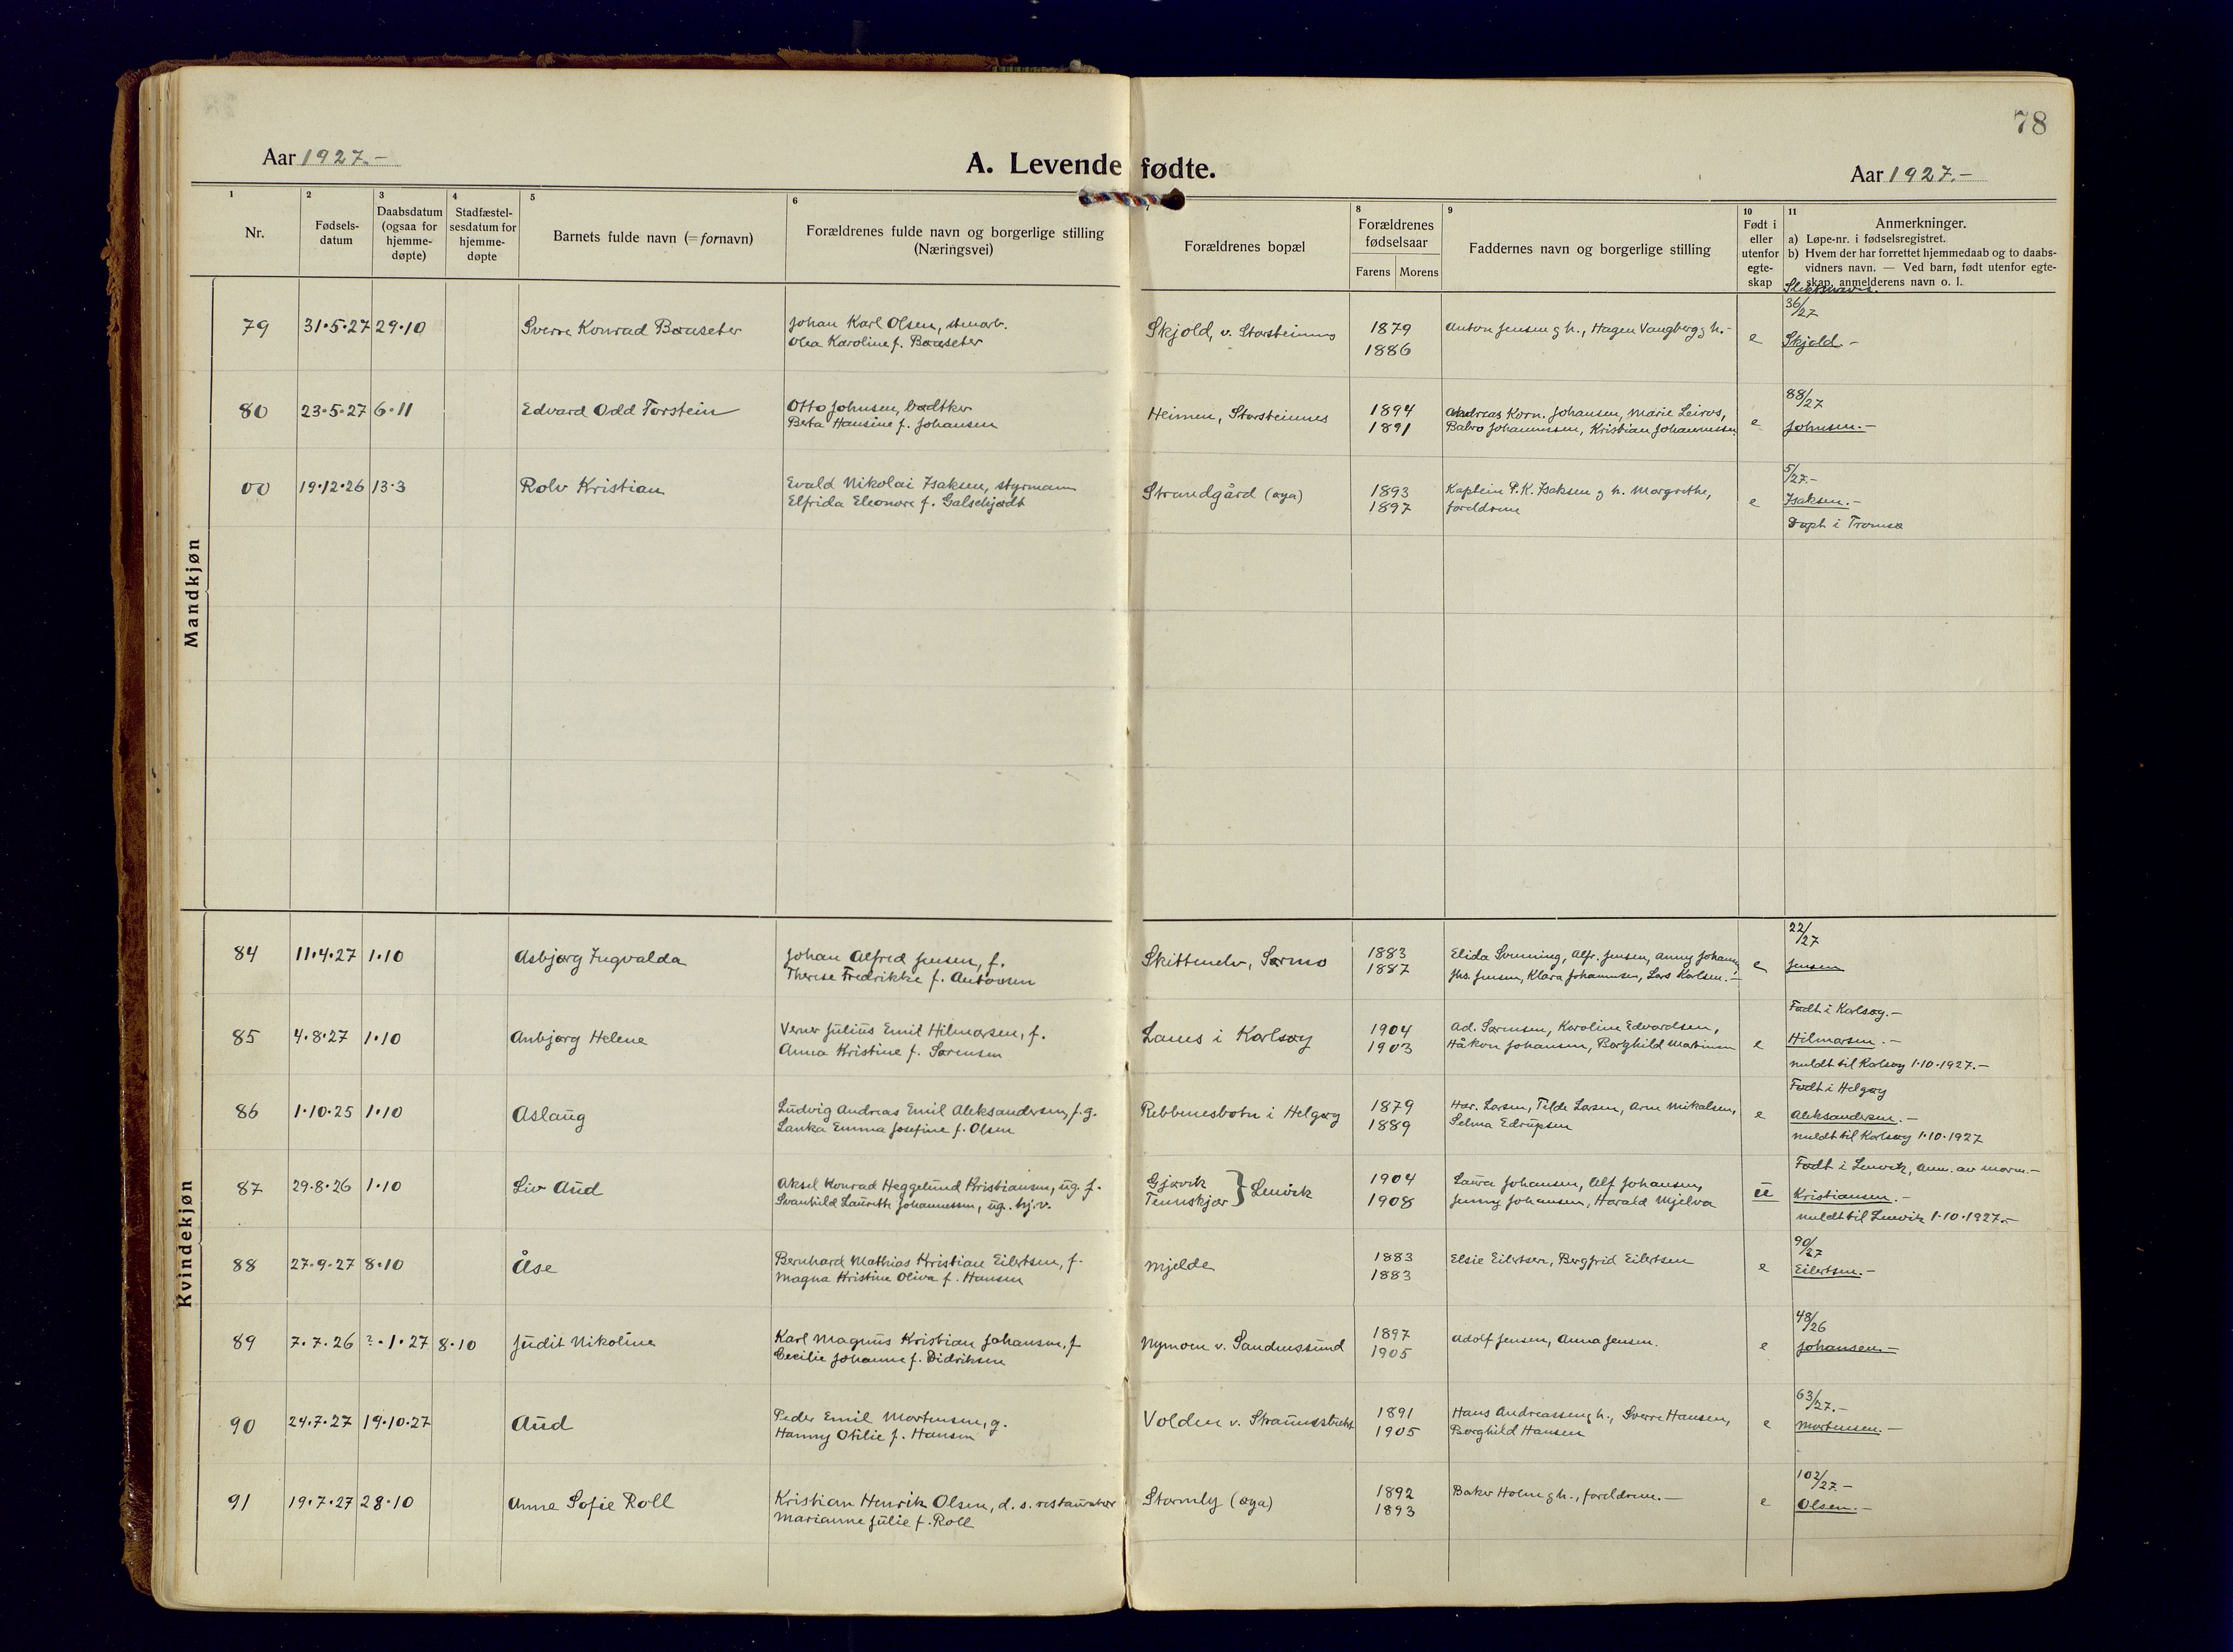 78
Aar 1927.-
A. Levende fødte.
Aar 1927.-
1 2 3 4 5 6 7 8 9 10 11
Nr.
Fødsels-
datum
Daabsdatum
(ogsaa for
hjemme-
døpte)
Stadfæstel-
sesdatum for
hjemme-
døpte
Barnets fulde navn (=fornavn)
Forældrenes fulde navn og borgerlige stilling
(Næringsvei)
Forældrenes bopæl
Forældrenes
fødselsaar
Farens Morens
Faddernes navn og borgerlige stilling
Født i
eller
utenfor
egte-
skap
Anmerkninger.
a) Løpe-nr. i fødselsregistret.
b) Hvem der har forrettet hjemmedaab og to daabs-
vidners navn. — Ved barn, født utenfor egte-
skap, anmelderens navn o. l.
Slektsnavn.
Mandkjøn
36/27
79 31·5·27 29·10 Sverre Konrad Baaseter Johan Karl Olsen, stenarb. Skjold, v. Storsteinnes 1879 Anton Jensen g h., Hagen Vangberg g h.- e Skjold.-
Olea Karoline f. Baaseter 1886
88/27
80 23·5·27 6·11 Edvard Odd Torstein Otto Johnsen, bødtker Heimen, Storsteinnes 1894 Andreas Korn. Johansen, Marie Leiros, e Johnsen.-
Berta Hansine f. Johansen 1891 Babro Johannessen, Kristian Johannessen
5/27.-
00 19·12·26 13·3 Rolv Kristian Evald Nikolai Isaksen, styrmann Strandgård (øya) 1893 Kaptein P. K. Isaksen g h. Margrethe, e Isaksen.-
Elfrida Eleonore f. Galschjødt 1897 foreldrene
Døpt i Tromsø
Kvindekjøn
22/27
84 11·4·27 1·10 Asbjørg Ingvalda Johan Alfred Jensen, f. Skittenelv, Sørmo 1883 Elida Svenning, Alfr. Jensen, Anny Johann., e Jensen
Therese Fredrikke f. Antonsen 1887 Jhs. Jensen, Klara Johannesen, Lars Karlsen.-
Født i Karlsøy.-
85 4·8·27 1·10 Anbjørg Helene Verner Julius Emil Hilmarsen, f. Lanes i Karlsøy 1904 Ad. Sørensen, Karoline Edvardsen, e Hilmarsen.-
Anna Kristine f. Sørensen 1903 Håkon Johansen, Borghild Martinsen
meldt til Karlsøy 1·10·1927.-
Født i Helgøy
86 1·10·25 1·10 Aslaug Ludvig Andreas Emil Aleksandersen, f. g. Rebbenesbotn i Helgøy 1879 Har. Larsen, Tilda Larsen, Arne Mikalsen, e Aleksandersen.-
Lanka Emma Josefine f. Olsen 1889 Selma Edrupsen
meldt til Karlsøy 1·10·1927
Født i Lenvik, Anm. av morm.-
87 29·8·26 1·10 Liv Aud Aksel Konrad Heggelund Kristiansen, ug. f. Gjøvik } Lenvik 1904 Laura Johansen, Alf Johansen, ue Kristiansen.-
Svanhild Laurette Johannessen, ug. hj.v. Tennskjær 1908 Jenny Johansen, Harald Mjelva
meldt til Lenvik 1·10·1927.-
90/27
88 27·9·27 8·10 Åse Bernhard Mathias Kristian Eilertsen, f. Mjelde 1883 Elsie Eilertsen, Bergfrid Eilertsen e Eilertsen.-
Magna Kristine Oliva f. Hansen 1883
48/26
89 7·7·26 ?·1·27 8·10 Judit Nikoline Karl Magnus Kristian Johansen, f Nymoen v. Sandnessund 1897 Adolf Jensen, Anna Jensen. e Johansen.-
Cecilie Johanne f. Didriksen 1905
63/27.-
90 24·7·27 19·10·27 Aud Peder Emil Mortensen, g. Volden v. Straumsbukt 1891 Hans Andreassen g h., Sverre Hansen, e Mortensen.-
Hanny Otilie f. Hansen 1905 Borghild Hansen
102/27.-
91 19·7·27 28·10 Anne Sofie Roll Kristian Henrik Olsen, d. s. restauratør Stormly (øya) 1892 Baker Holm g h., foreldrene.- e Olsen.-
Marianne Julie f. Roll 1893